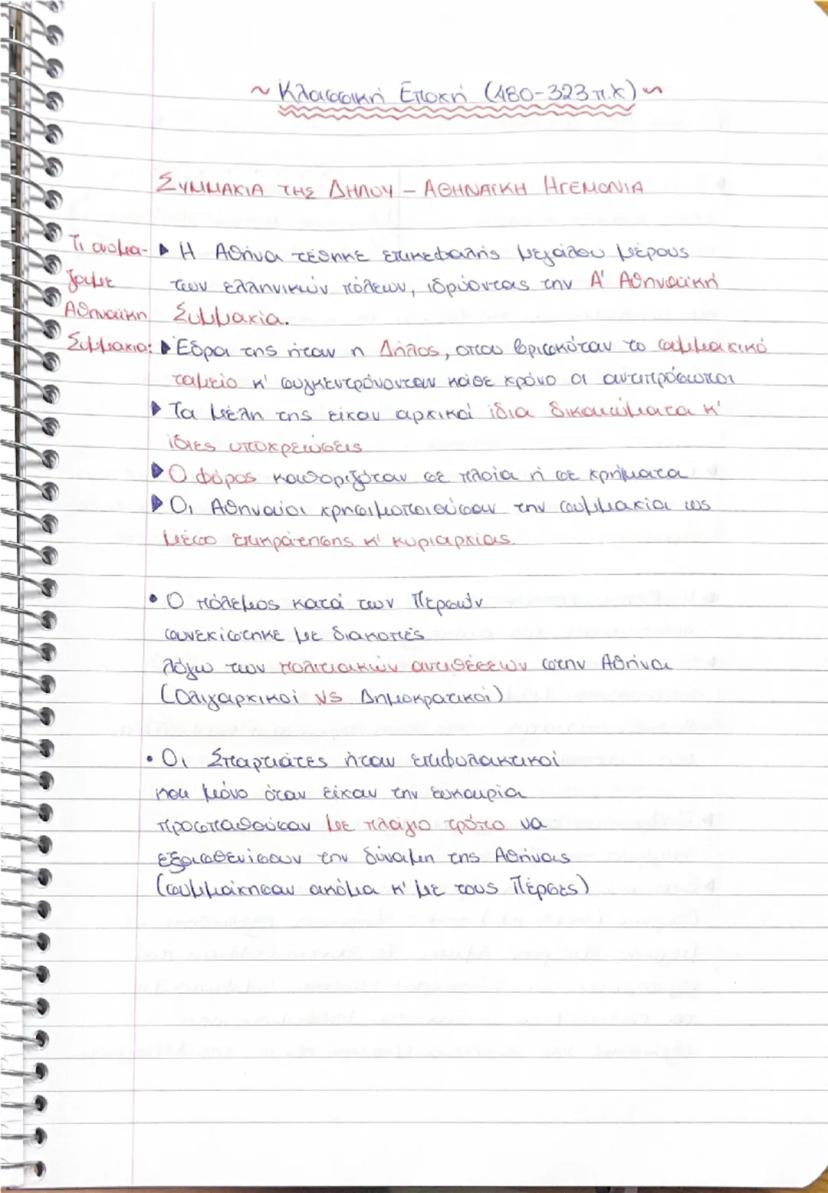 ~ Κλασσική Εποχή (480-323 π.Χ) ~
ΣΥΜΜΑΧΙΑ ΤΗΣ ΔΗΛΟΥ – ΑΘΗΝΑΪΚΗ ΗΓΕΜΟΝΙΑ
Τι ονομά-
ζουμε
Αθηναϊκη
Συμμαχία:
▶ Η Αθήνα τέθηκε επικεφαλής μεγάλου μέρους
των ελληνικών πόλεων, ιδρύοντας την Α' Αθηναϊκή
Συμμαχία.
▶ Έδρα της ήταν η Δήλος, οπου βρισκόταν το συμμαχικό
ταμείο κ' συγκεντρόνονταν κάθε χρόνο οι αντιπρόσωποι
▶ Τα μέλη της είχαν αρχικά ίδια δικαιώματα κ'
ίδιες υποχρεώσεις
▶ Ο φόρος καθοριζόταν σε πλοία ή σε χρήματα
▶ Οι Αθηναίοι χρησιμοποιούσαν την συμμαχία ως
μέσο επικράτησης κ' κυριαρχίας.
• Ο πόλεμος κατά των Περσών
συνεχίστηκε με διακοπές
λόγω των πολιτιακών αντιθέσεων στην Αθήνα
(Ολιγαρχικοί VS Δημοκρατικοί)
• Οι Σπαρτιάτες ήταν επιφυλακτικοί
και μόνο όταν είχαν την ευκαιρία
προσπαθούσαν με πλάγιο τρόπο να
εξασθενίσουν την δύναμη της Αθήνας
(συμμάχησαν ακόμα κ' με τους Πέρσες)